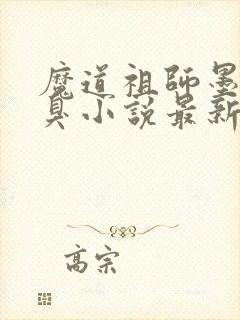 魔道祖師墨
臭小說最新
高宗